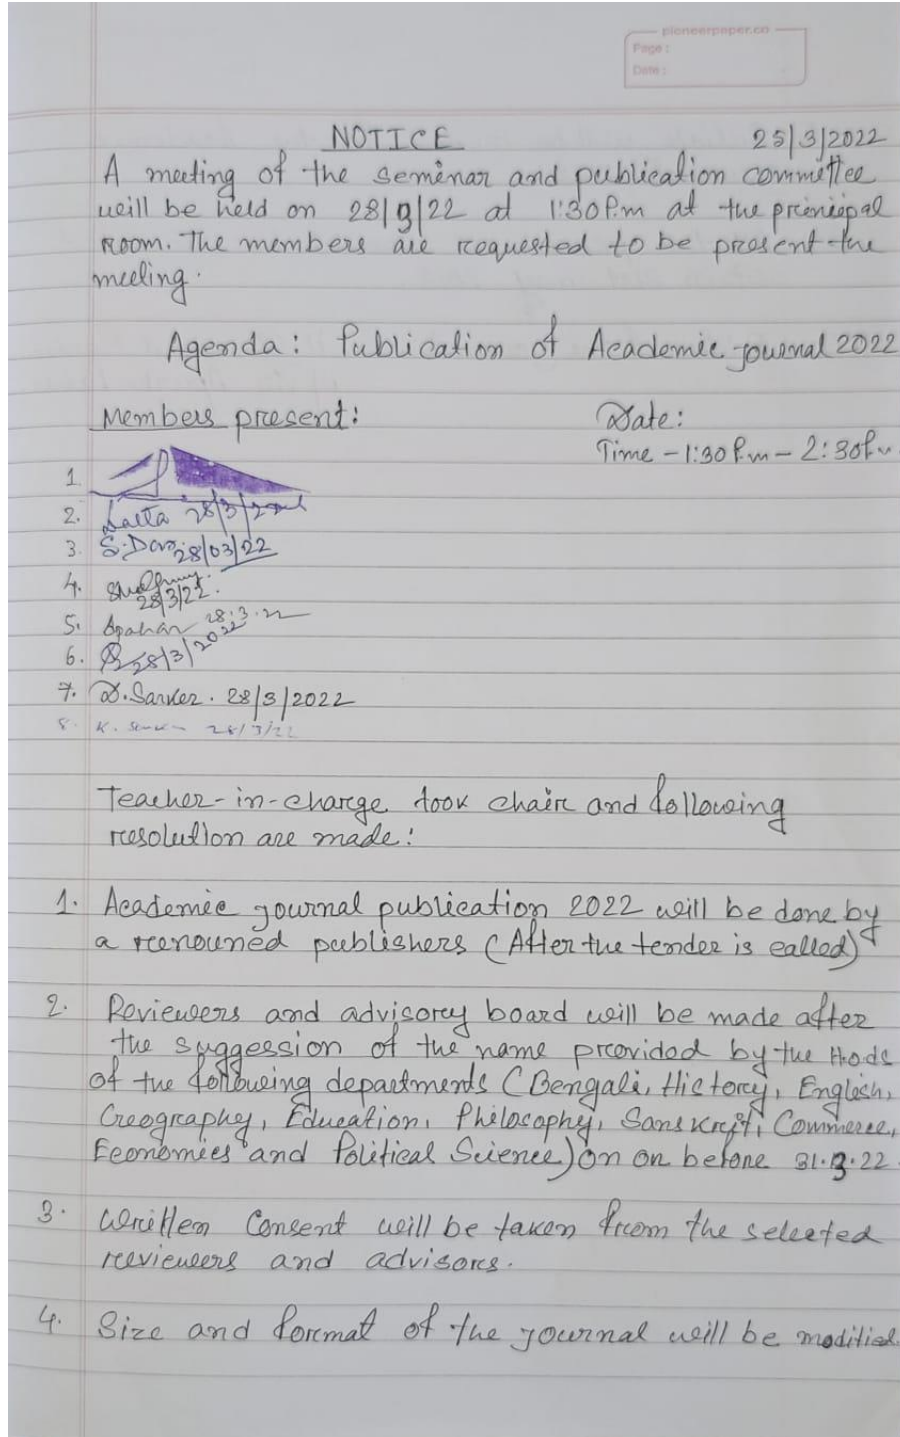 pioneerpaper.co
Page :
Date :
NOTICE 25/3/2022
A meeting of the seminar and publication committee
will be held on 28/3/22 at 1:30 P.m at the principal
room. The members are requested to be present the
meeting.
Agenda: Publication of Academic journal 2022
Members present: Date:
Time - 1:30 P.m - 2:30 P.
1.
2. 28/3/22
3. S. Das 28/03/22
4. 28/3/22.
5. 28.3.22
6. 28/3/2022
7. D. Sarker. 28/3/2022
8. K. 28/3/22
Teacher-in-charge took chair and following
resolution are made:
1. Academic journal publication 2022 will be done by
a renouned publishers (After the tender is called)
2. Reviewers and advisory board will be made after
the suggession of the name provided by the H.ods
of the following departments (Bengali, History, English,
Geography, Education, Philosophy, Sanskrit, Commerce,
Economics and Political Science) on on before 31.3.22
3. Written Consent will be taken from the selected
reviewers and advisors.
4. Size and format of the journal will be modified